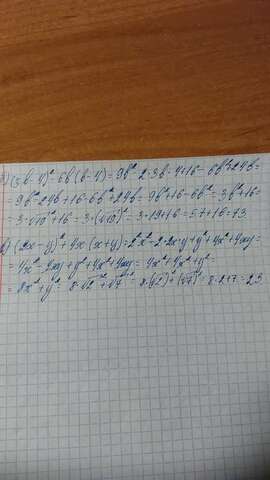 (3b-4)²-6b(b-4)=9b²-2·3b·4+16-6b²+24b=
=9b²-24b+16-6b²+24b=9b²+16-6b²=3b²+16=
=3·√19²+16=3·(√19)²=3·19+16=57+16=73.
(2x-y)²+4x(x+y)=2²x²-2·2x·y+y²+4x²+4xy=
=4x²-4xy+y²+4x²+4xy=4x²+4x²+y²=
=8x²+y²=8·√2²+√7²=8(√2)²+(√7)²=8·2+7=23